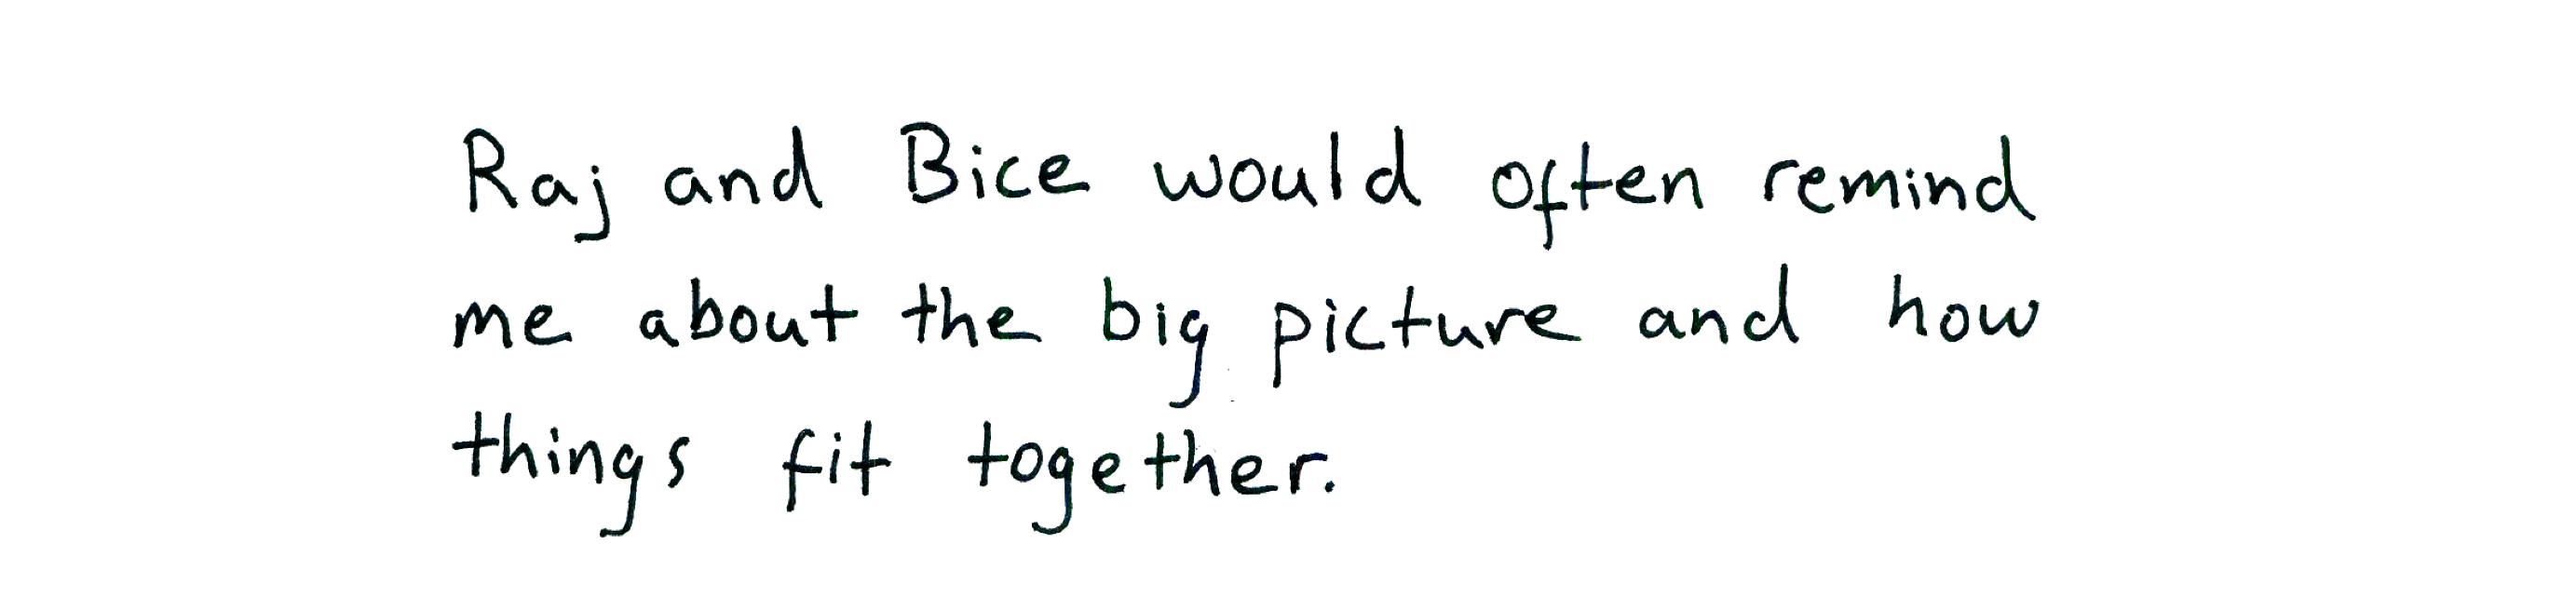 Raj and Bice would often remind
me about the big picture and how
things fit together.